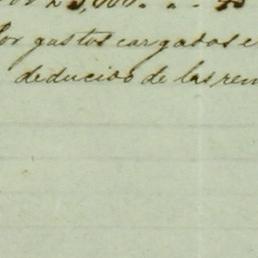 £ 3,000. " . "
por gastos cargados e
deducido de las rem